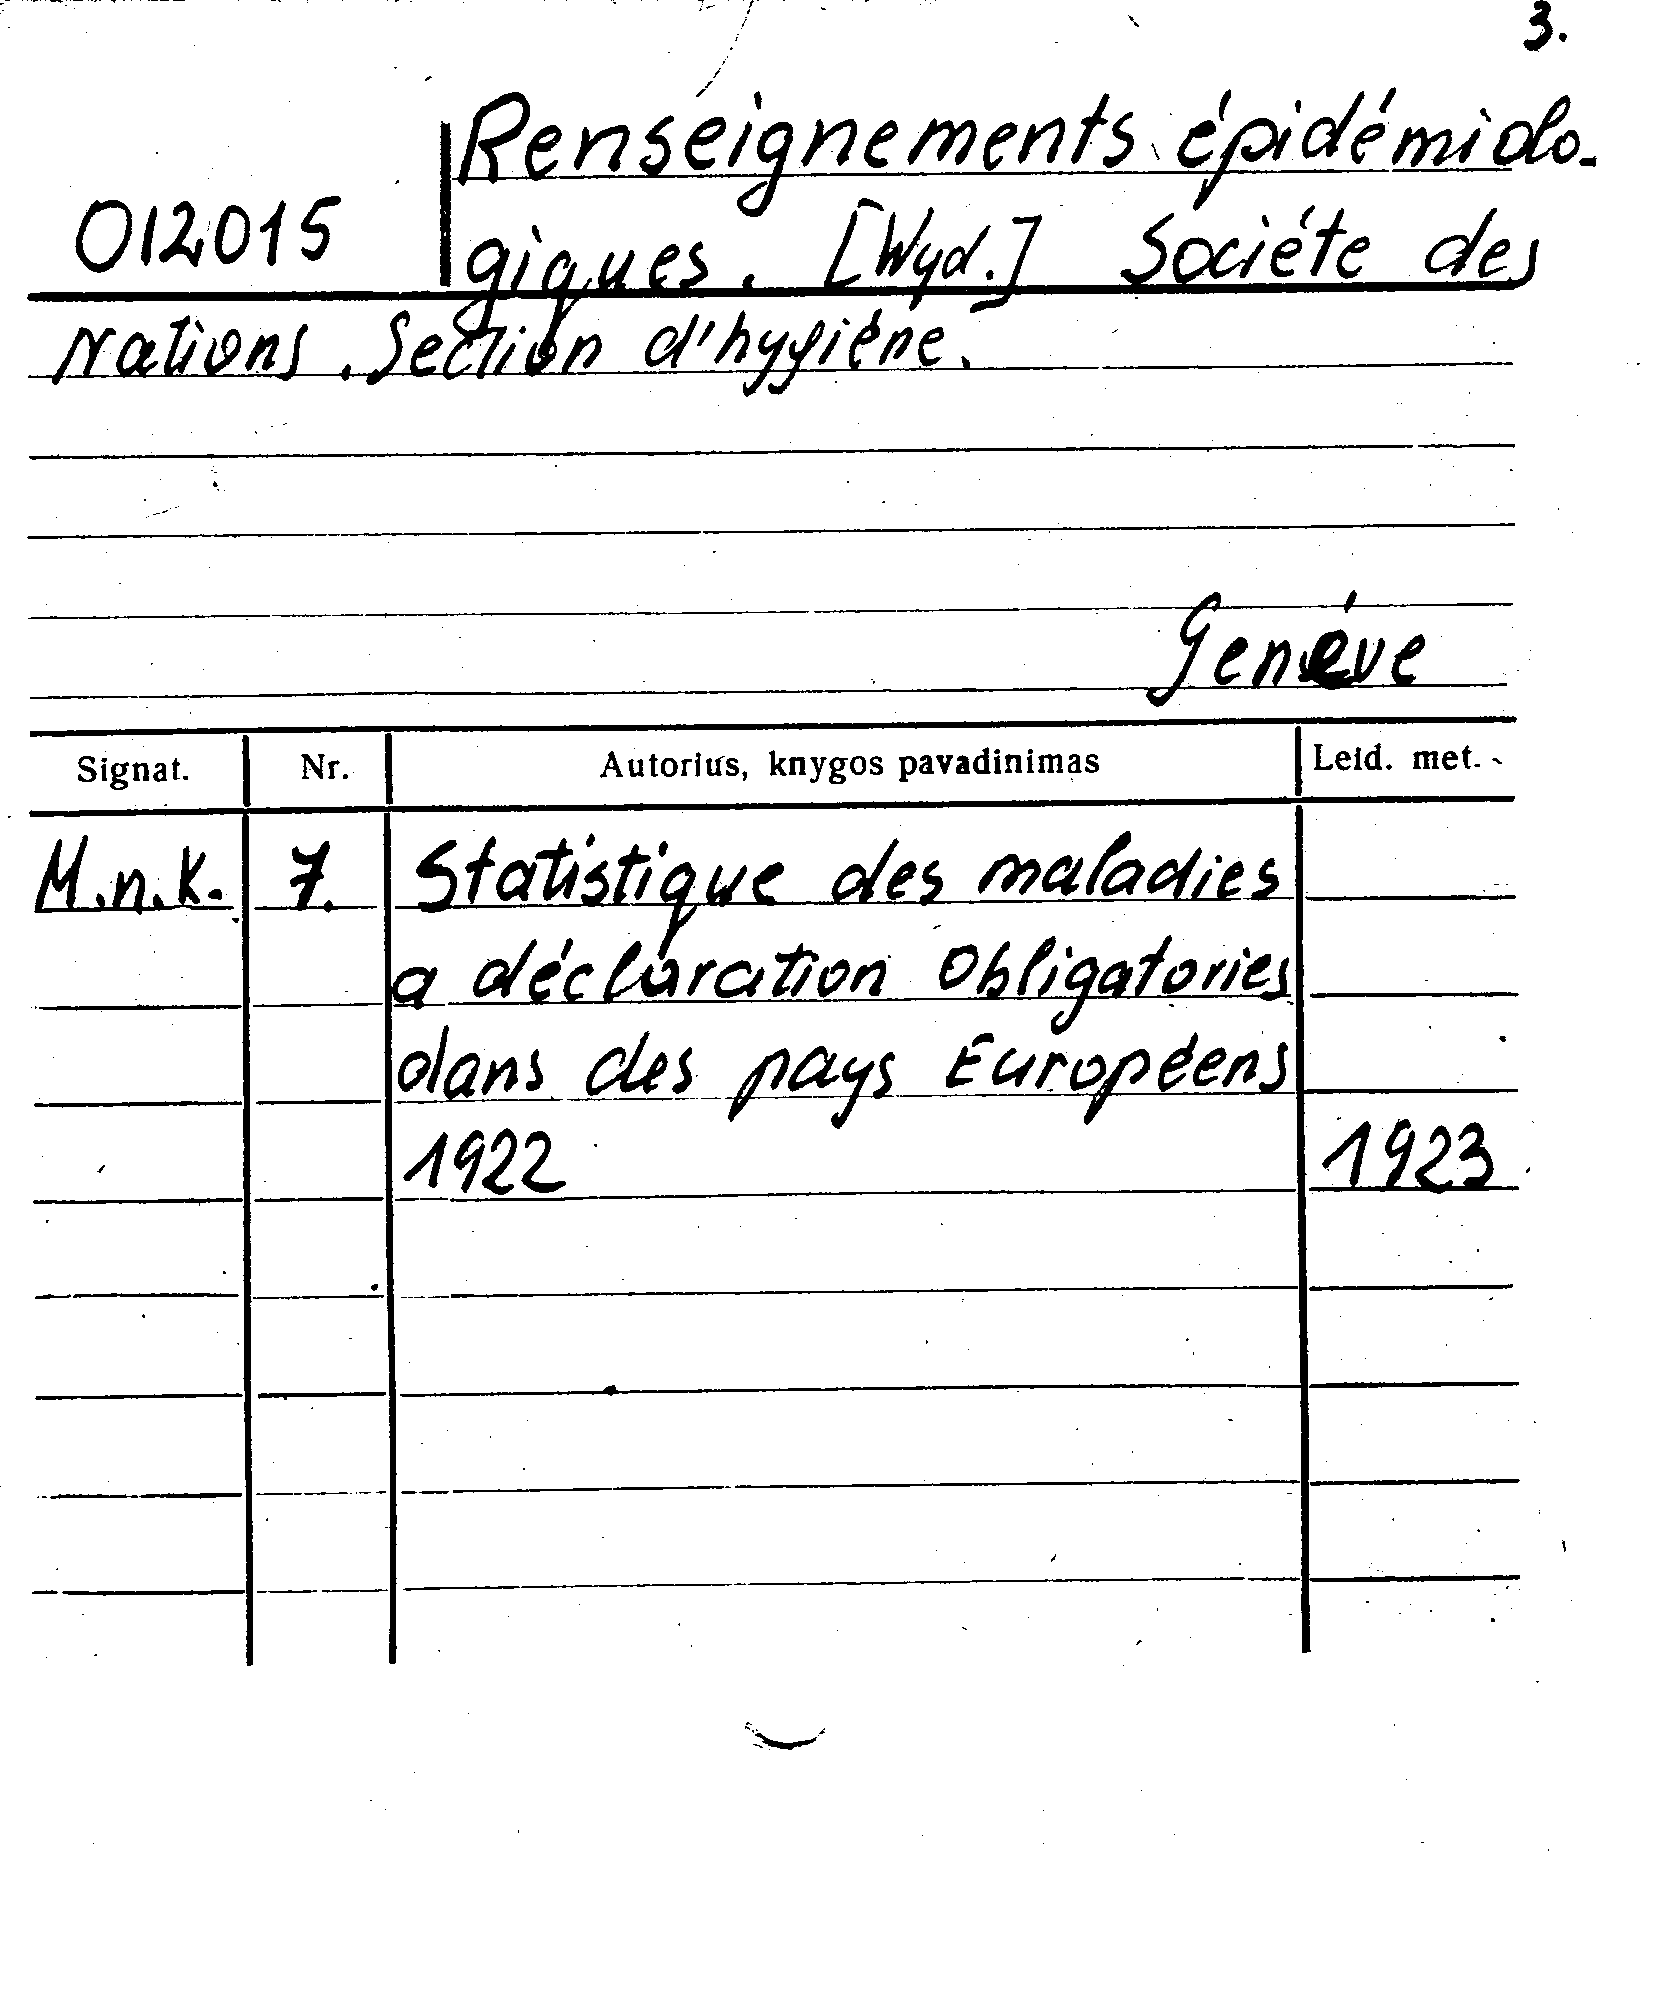 3.
Renseignements épidémiolo-
012015 giques. [Wyd.] Sociéte des
Nations. Section d'hygiéne.
Genéve
Signat. Nr. Autorius, knygos pavadinimas Leid. met.
M.n.K. 7. Statistique des maladies
a déclaration Obligatories
dans des pays Européens
1922 1923